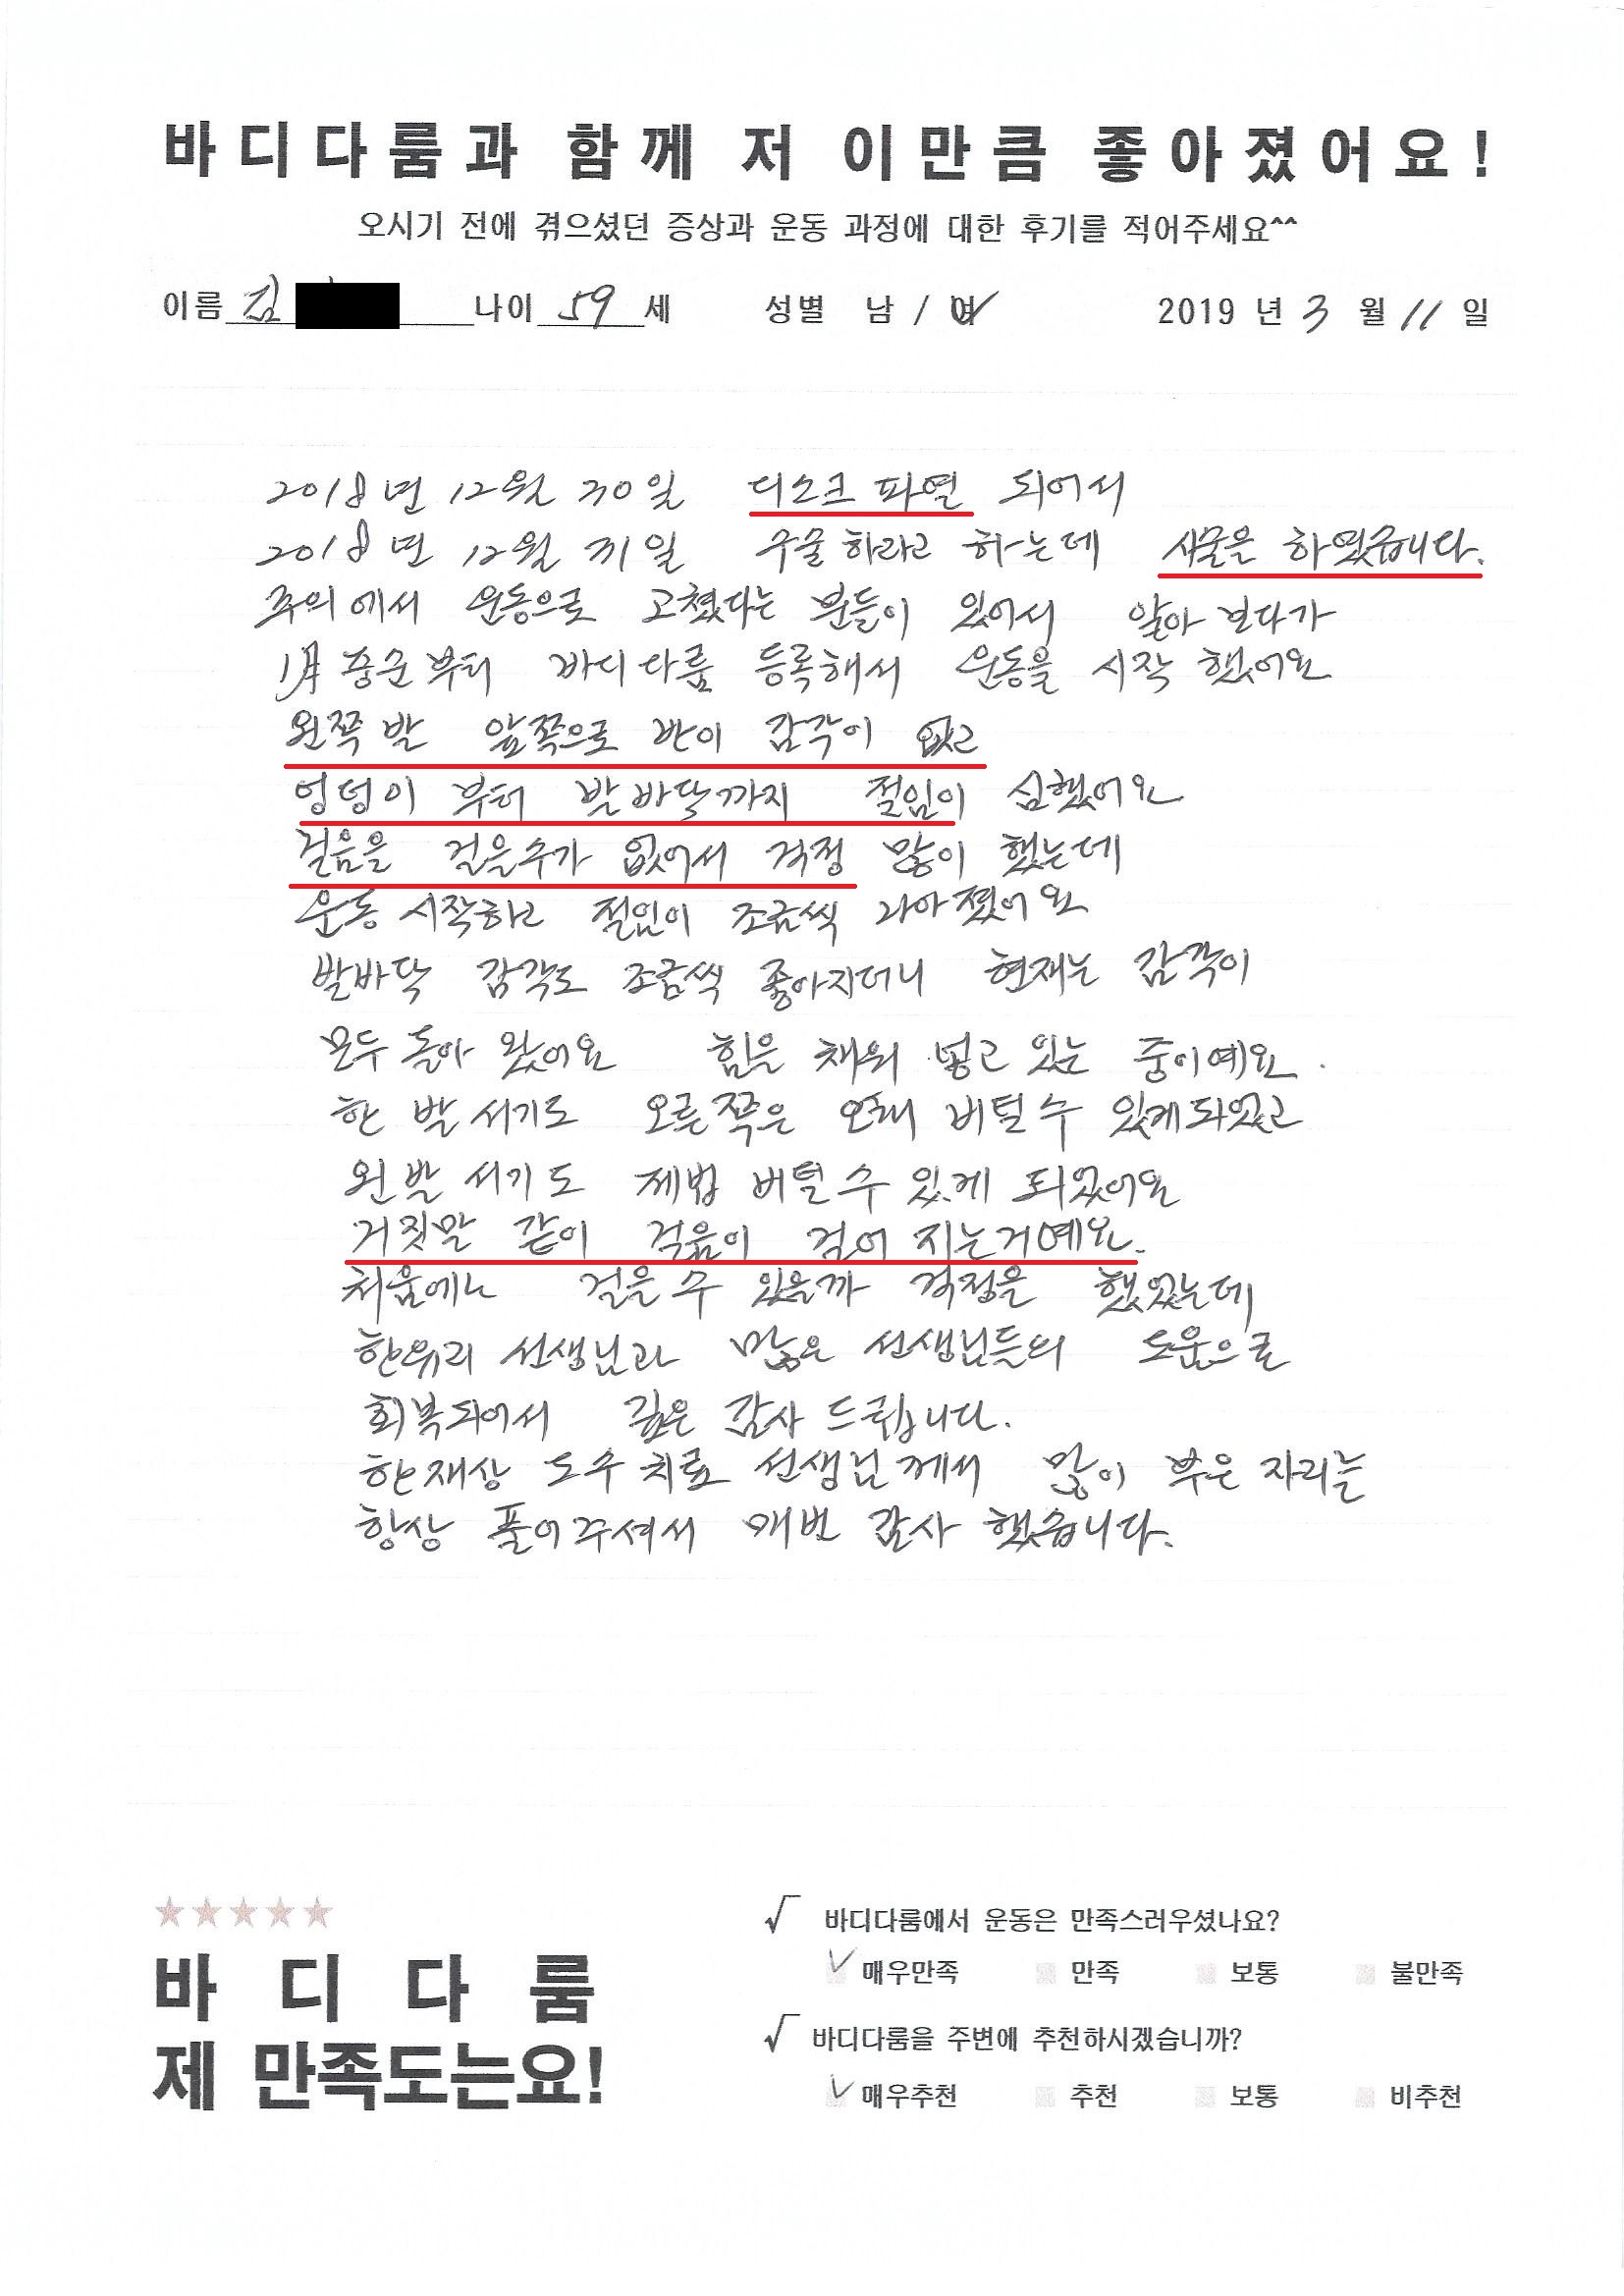 바디다룸과 함께 저 이만큼 좋아졌어요!
오시기 전에 겪으셨던 증상과 운동 과정에 대한 후기를 적어주세요^^
이름 김 나이 59 세 성별 남 / 여 2019 년 3 월 11 일
2018년 12월 30일 디스크 파열 되어서
2018년 12월 31일 수술하라고 하는데 시술을 하였습니다.
주의에서 운동으로 고쳤다는 분들이 있어서 알아 보다가
1月 중순부터 바디다룸 등록해서 운동을 시작 했어요
왼쪽 발 앞쪽으로 반이 감각이 없고
엉덩이 부터 발바닥까지 절임이 심했어요
걸음을 걸을수가 없어서 걱정 많이 했는데
운동 시작하고 절임이 조금씩 나아졌어요
발바닥 감각도 조금씩 좋아지더니 현재는 감각이
모두 돌아 왔어요 힘을 채워 넣고 있는 중이예요.
한 발 서기도 오른쪽은 오래 버틸수 있게되었고
왼발 서기도 제법 버틸수 있게 되었어요
거짓말 같이 걸음이 걸어 지는거예요.
처음에는 걸을 수 있을까 걱정을 했었는데
한유리 선생님과 많은 선생님들의 도움으로
회복되어서 깊은 감사 드립니다.
한재상 도수치료 선생님께서 많이 부은 자리를
항상 풀어주셔서 매번 감사 했습니다.
★★★★★
바디다룸
제 만족도는요!
√ 바디다룸에서 운동은 만족스러우셨나요?
✓ 매우만족 만족 보통 불만족
√ 바디다룸을 주변에 추천하시겠습니까?
✓ 매우추천 추천 보통 비추천